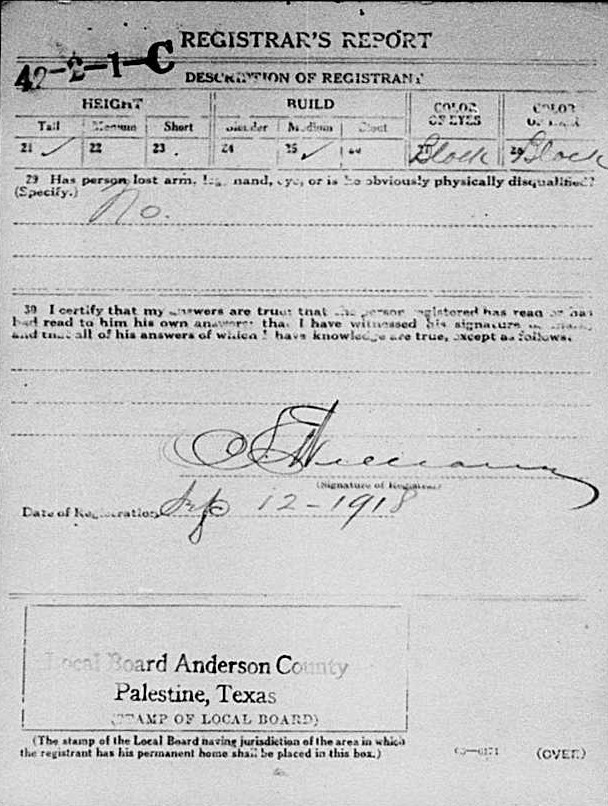 REGISTRAR'S REPORT
42-2-1-C
DESCRIPTION OF REGISTRANT
HEIGHT BUILD COLOR OF EYES COLOR OF HAIR
Tall Medium Short Slender Medium Stout
21 ✓ 22 23 24 25 ✓ 26 27 Black 28 Black
29 Has person lost arm, leg, hand, eye, or is he obviously physically disqualified?
(Specify.) No.
30 I certify that my answers are true; that the person registered has read or has
had read to him his own answers; that I have witnessed his signature or mark,
and that all of his answers of which I have knowledge are true, except as follows:
(Signature of Registrar)
Date of Registration Sep 12-1918
Local Board Anderson County
Palestine, Texas
(STAMP OF LOCAL BOARD)
(The stamp of the Local Board having jurisdiction of the area in which
the registrant has his permanent home shall be placed in this box.)
03-6171 (OVER)